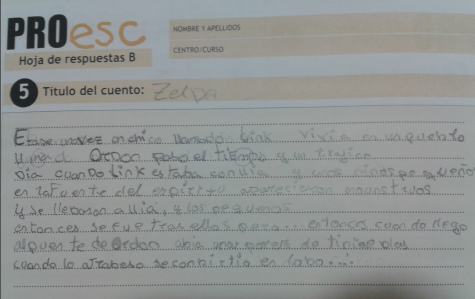 PROesc
Hoja de respuestas B
NOMBRE Y APELLIDOS
CENTRO/CURSO
5 Título del cuento: Zelda
Erase una vez un chico llamado Link vivia en un pueblo
Ordon paso el tiempo y un trajico
Dia cuando Link estaba con ilia y unos niños pequeños
en la fuente del espiritu aparecieron monstruos
y se llebaron a ilia, y los pequenos
entonces se fue tras ellos pero... entonces cuando llego
al puente de Ordon abia una pared de tinieblas
cuando lo atrabeso se conbirtio en lobo...